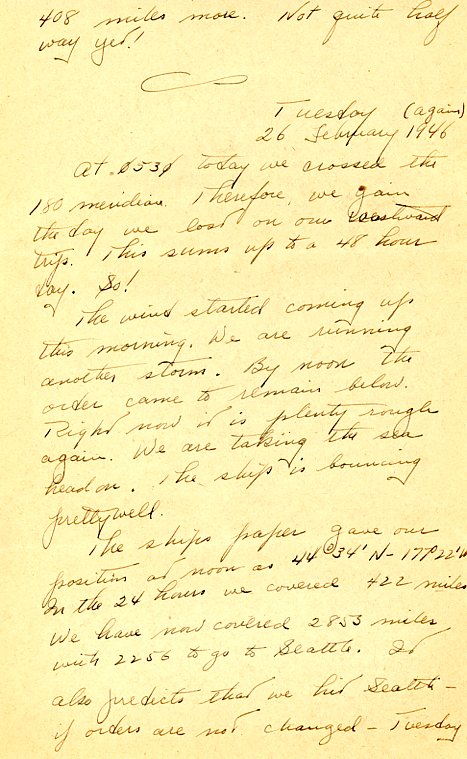 408 miles more. Not quite half
way yet!
Tuesday (again)
26 February 1946
At 0530 today we crossed the
180 meridian. Therefore, we gain
the day we lost on our Westward
trip. This sums up to a 48 hour
day. So!
The wind started coming up
this morning. We are running
another storm. By noon the
order came to remain below.
Right now it is plenty rough
again. We are taking the sea
head on. The ship is bouncing
pretty well.
The ships paper gave our
position at noon as 44° 34' N - 177° 22' W
In the 24 hours we covered 422 miles
We have now covered 2853 miles
with 2256 to go to Seattle. It
also predicts that we hit Seattle -
if orders are not changed - Tuesday